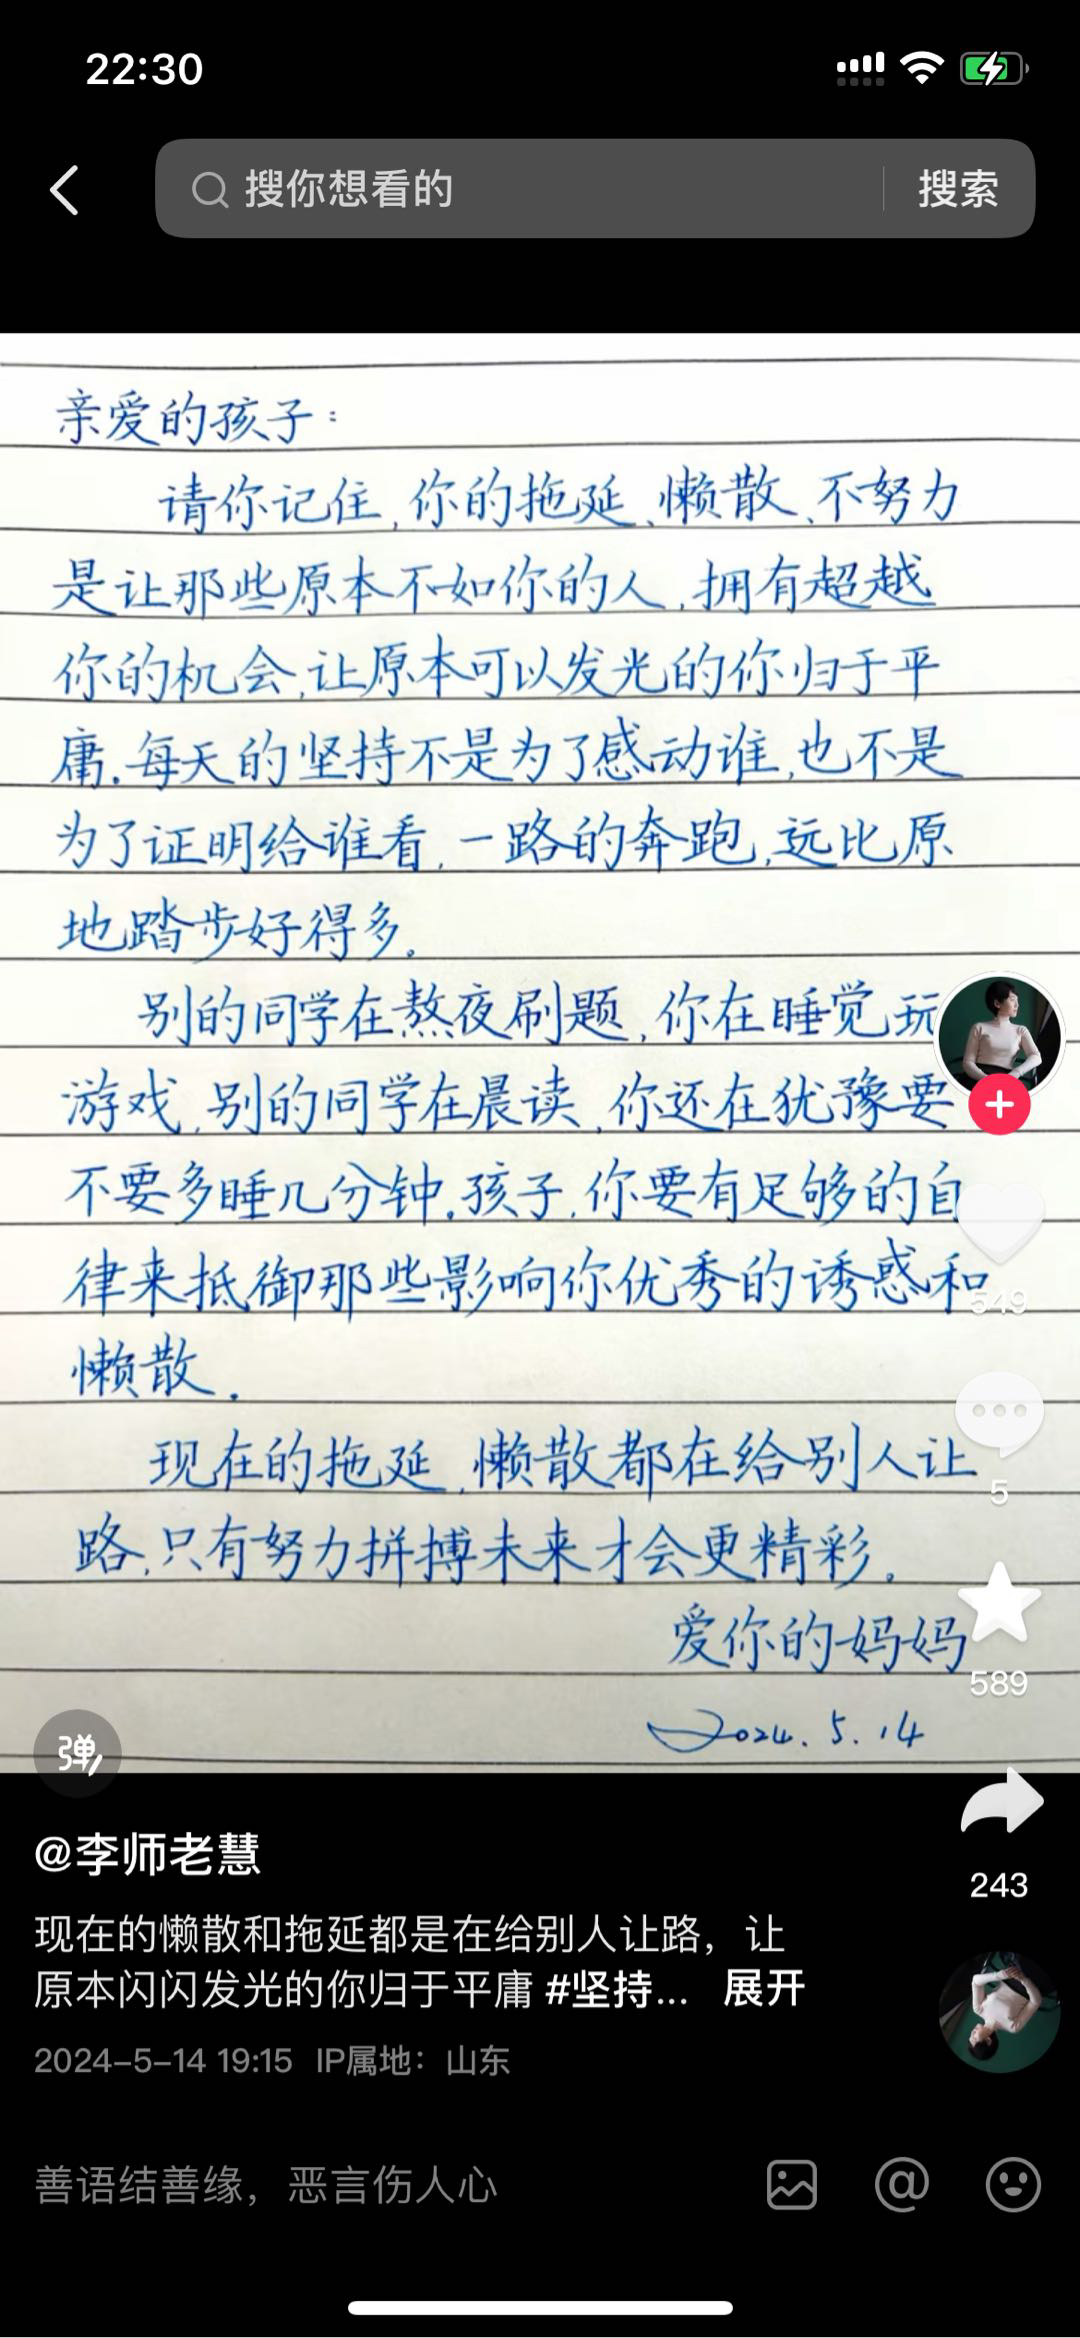 22:30
搜你想看的
搜索
亲爱的孩子：
请你记住,你的拖延、懒散、不努力
是让那些原本不如你的人,拥有超越
你的机会,让原本可以发光的你归于平
庸.每天的坚持不是为了感动谁,也不是
为了证明给谁看,一路的奔跑,远比原
地踏步好得多.
别的同学在熬夜刷题,你在睡觉玩
游戏,别的同学在晨读,你还在犹豫要
不要多睡几分钟.孩子,你要有足够的自
律来抵御那些影响你优秀的诱惑和
懒散.
现在的拖延,懒散都在给别人让
路,只有努力拼搏未来才会更精彩.
爱你的妈妈
2024.5.14
549
5
589
243
弹
@李师老慧
现在的懒散和拖延都是在给别人让路，让
原本闪闪发光的你归于平庸 #坚持... 展开
2024-5-14 19:15 IP属地：山东
善语结善缘，恶言伤人心